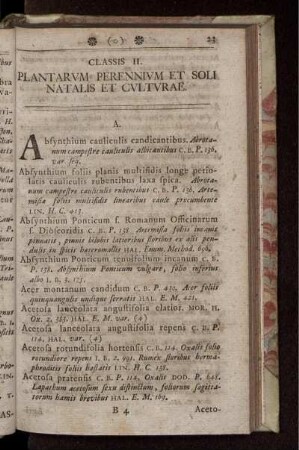 (o) 23
CLASSIS II.
PLANTARVM PERENNIVM ET SOLI
NATALIS ET CVLTVRAE.
A.
Absynthium cauliculis candicantibus. Abrota-
num campestre cauliculis albicantibus C. B. P. 136.
var seq.
Absynthium foliis planis multifidis longe petio-
latis cauliculis rubentibus laxa spica. Abrota-
num campestre cauliculis rubentibus C. B. P. 136. Arte-
misia foliis multifidis linearibus caule procumbente
LIN. H. C. 403.
Absynthium Ponticum s. Romanum Officinarum
s. Dioscoridis C. B. P. 138 Artemisia foliis
pinnatis, pinnis
HAL. Enum. Method.
Absynthium Ponticum tenuifolium incanum C. B.
P. 138. Absynthium Ponticum vulgare, folio inferius
albo I. B. 3. 175.
Acer montanum candidum C. B. P. 430. Acer foliis
quinquangulis undique serratis HAL. E. M.
Acetosa lanceolata angustifolia elatior. MOR. H.
Ox. 2. HAL. E. M. var. (4)
Acetosa lanceolata angustifolia repens C. B. P.
114. HAL. var. (4)
Acetosa rotundifolia hortensis C. B. 114. Oxalis folio
rotundiore repens I. B. 2. 991. Rumex floribus herma-
phroditis foliis hastatis LIN. H. C.
Acetosa pratensis C. B. P. 114. Oxalis DOD. P.
Lapathum acetosum sexu distinctum, foliorum sagitta-
torum hamis brevibus HAL. E. M. 169.
B 4 Aceto-